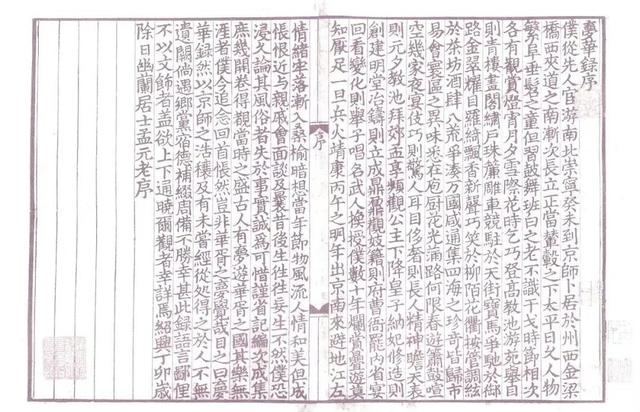 夢華録序
僕從先人宦游南北崇寧癸未到京師卜居於州西金梁
橋西夾道之南漸次長立正當輦轂之下太平日久人物
繁阜垂髫之童但習鼓舞班白之老不識干戈時節相次
各有觀賞燈宵月夕雪際花時乞巧登高教池游苑舉目
則青樓畫閣繡戶珠簾雕車競駐於天街寶馬爭馳於御
路金翠耀目羅綺飄香新聲巧笑於柳陌花衢按管調絃
於茶坊酒肆八荒爭湊萬國咸通集四海之珍奇皆歸市
易會寰區之異味悉在庖厨花光滿路何限春遊簫鼓喧
空幾家夜宴伎巧則驚人耳目侈奢則長人精神瞻天表
則元夕教池拜郊孟享頻觀公主下降皇子納妃修造則
創建明堂冶鑄則立成鼎鼐觀妓籍則府曹衙罷内省宴
回看變化則舉子唱名武人換授僕數十年爛賞疊遊莫
知厭足一旦兵火靖康丙午之明年出京南來避地江左
序
情緒牢落漸入桑榆暗想當年節物風流人情和美但成
悵恨近與親戚會面談及曩昔後生往往妄生不然僕恐
浸久論其風俗者失於事實誠爲可惜謹省記編次成集
庶幾開卷得覩當時之盛古人有夢遊華胥之國其樂無
涯者僕今追念回首悵然豈非華胥之夢覺哉目之曰夢
華録然以京師之浩穰及有未嘗經從處得之於人不無
遺闕倘遇鄉黨宿德補綴周備不勝幸甚此録語言鄙俚
不以文飾者蓋欲上下通曉爾觀者幸詳焉紹興丁卯歲
除日幽蘭居士孟元老序